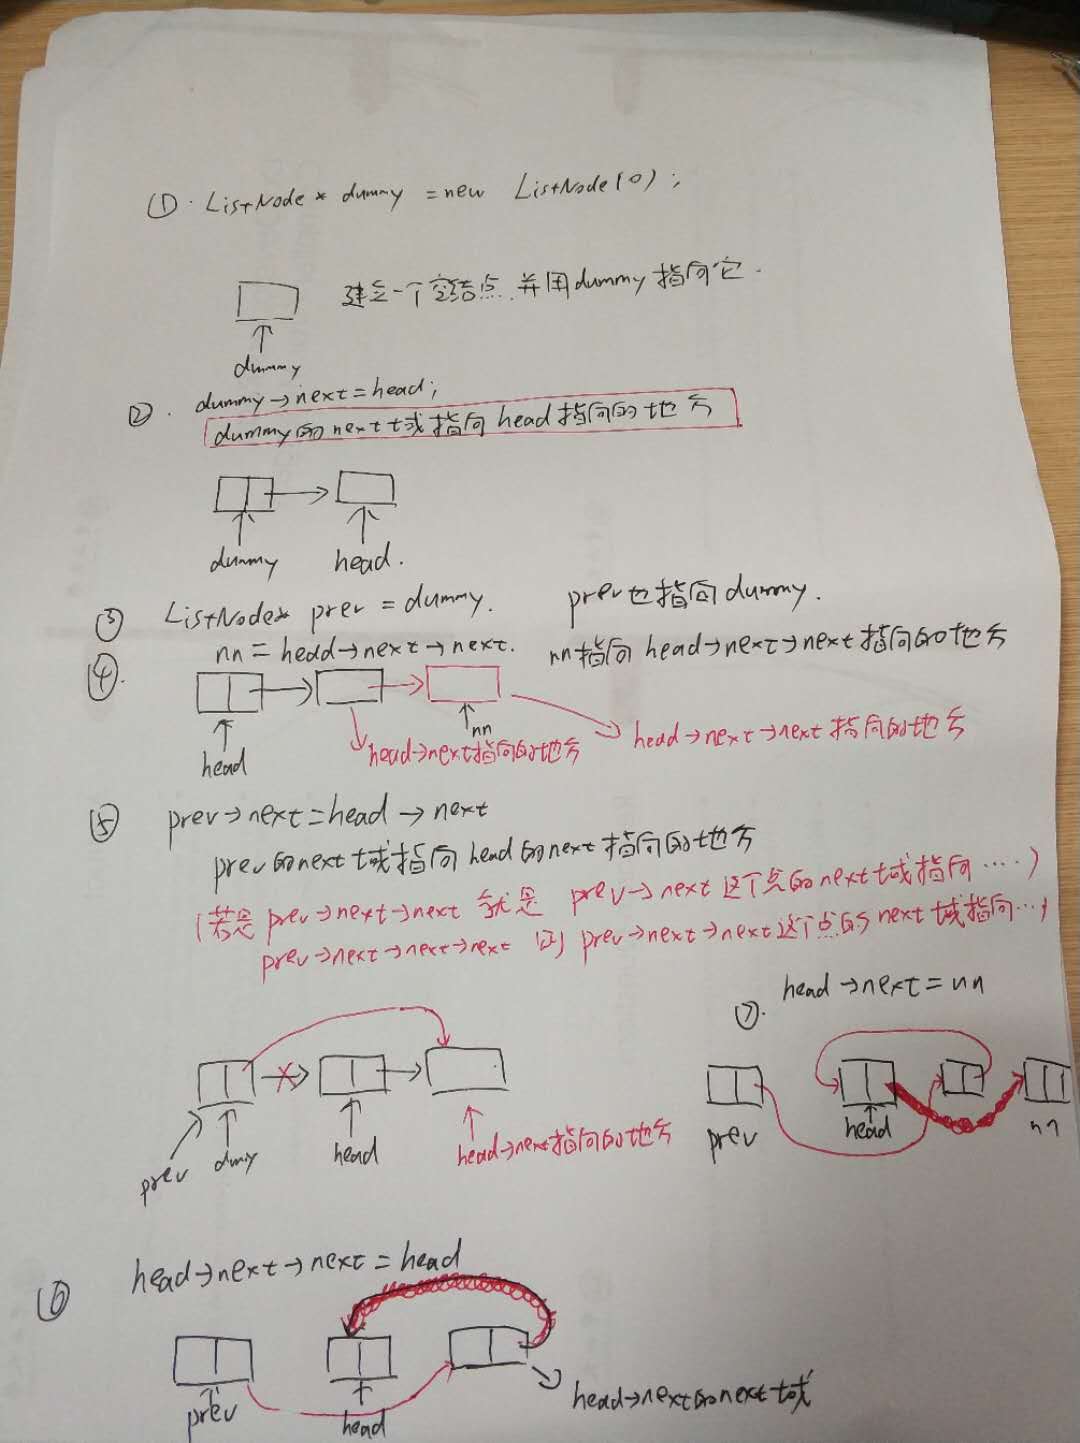 ① ListNode * dummy = new ListNode(0);
建立一个空结点,并用dummy指向它.
dummy
② dummy→next=head;
dummy的next域指向head指向的地方
dummy head.
③ ListNode* prev = dummy. prev也指向dummy.
④ nn = head→next→next. nn指向head→next→next指向的地方
nn
head
head→next指向的地方
head→next→next指向的地方
⑤ prev→next=head→next
prev的next域指向head的next指向的地方
(若是prev→next→next 就是 prev→next这个点的next域指向……)
prev→next→next→next 即 prev→next→next这个点的next域指向…)
prev dmy head head→next指向的地方
⑦. head→next=nn
prev head nn
⑥ head→next→next=head
prev head head→next的next域